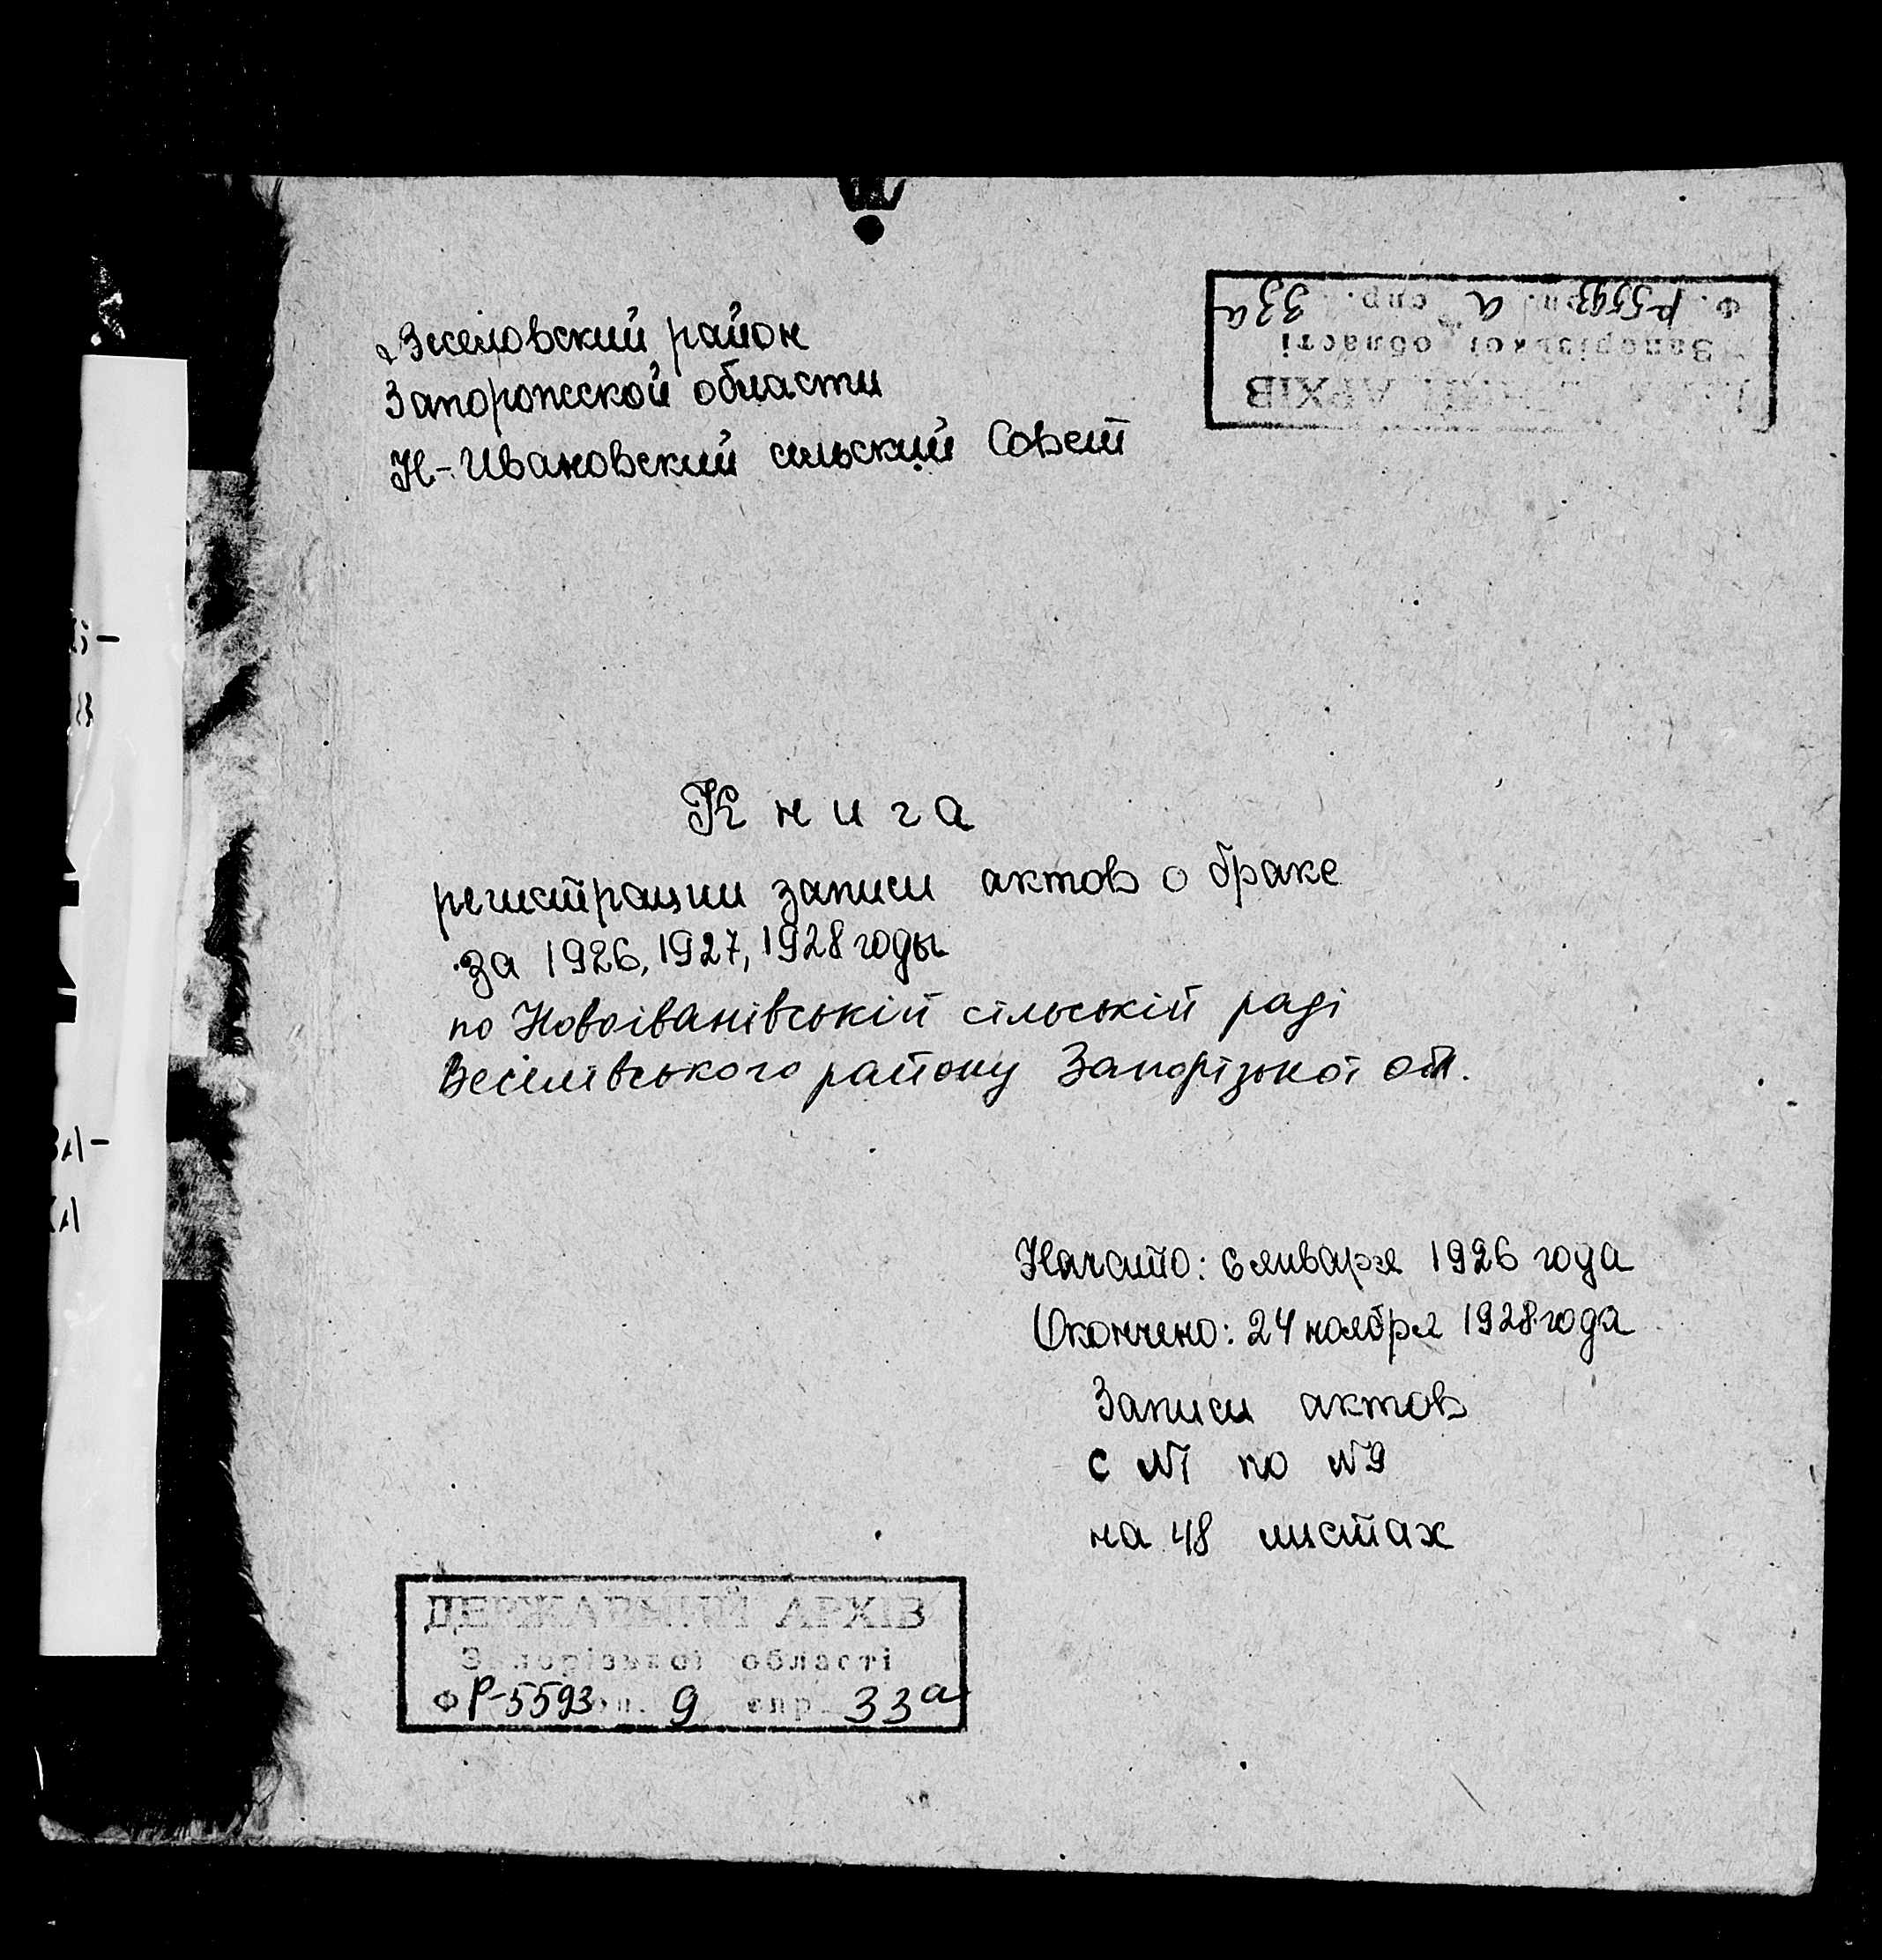 Веселовский район
Запорожской области
Н-Ивановский сельский Совет
Ф. Р-5593 оп. 9 спр. 33а
Запорізької області
ДЕРЖАВНИЙ АРХІВ
Книга
регистрации записи актов о браке
за 1926, 1927, 1928 годы
по Новоіванівській сільській раді
Веселівського району Запорізької обл.
Начато: 6 января 1926 года
Окончено: 24 ноября 1928 года
Записи актов
с №1 по №9
на 48 листах
ДЕРЖАВНИЙ АРХІВ
Запорізької області
Ф Р-5593 оп. 9 спр. 33а